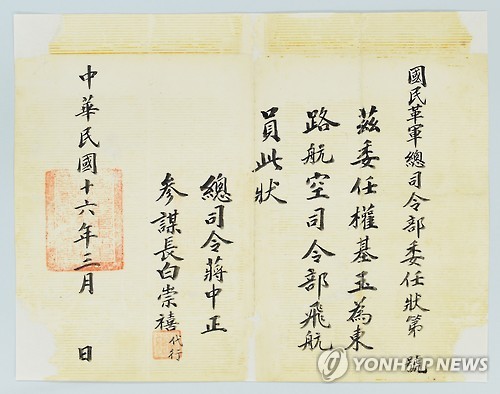 國民革軍總司令部委任狀第 號
茲委任權基玉為東
路航空司令部飛航
員此狀
總司令蔣中正
參謀長白崇禧代行
中華民國十六年三月 日
YONHAP NEWS